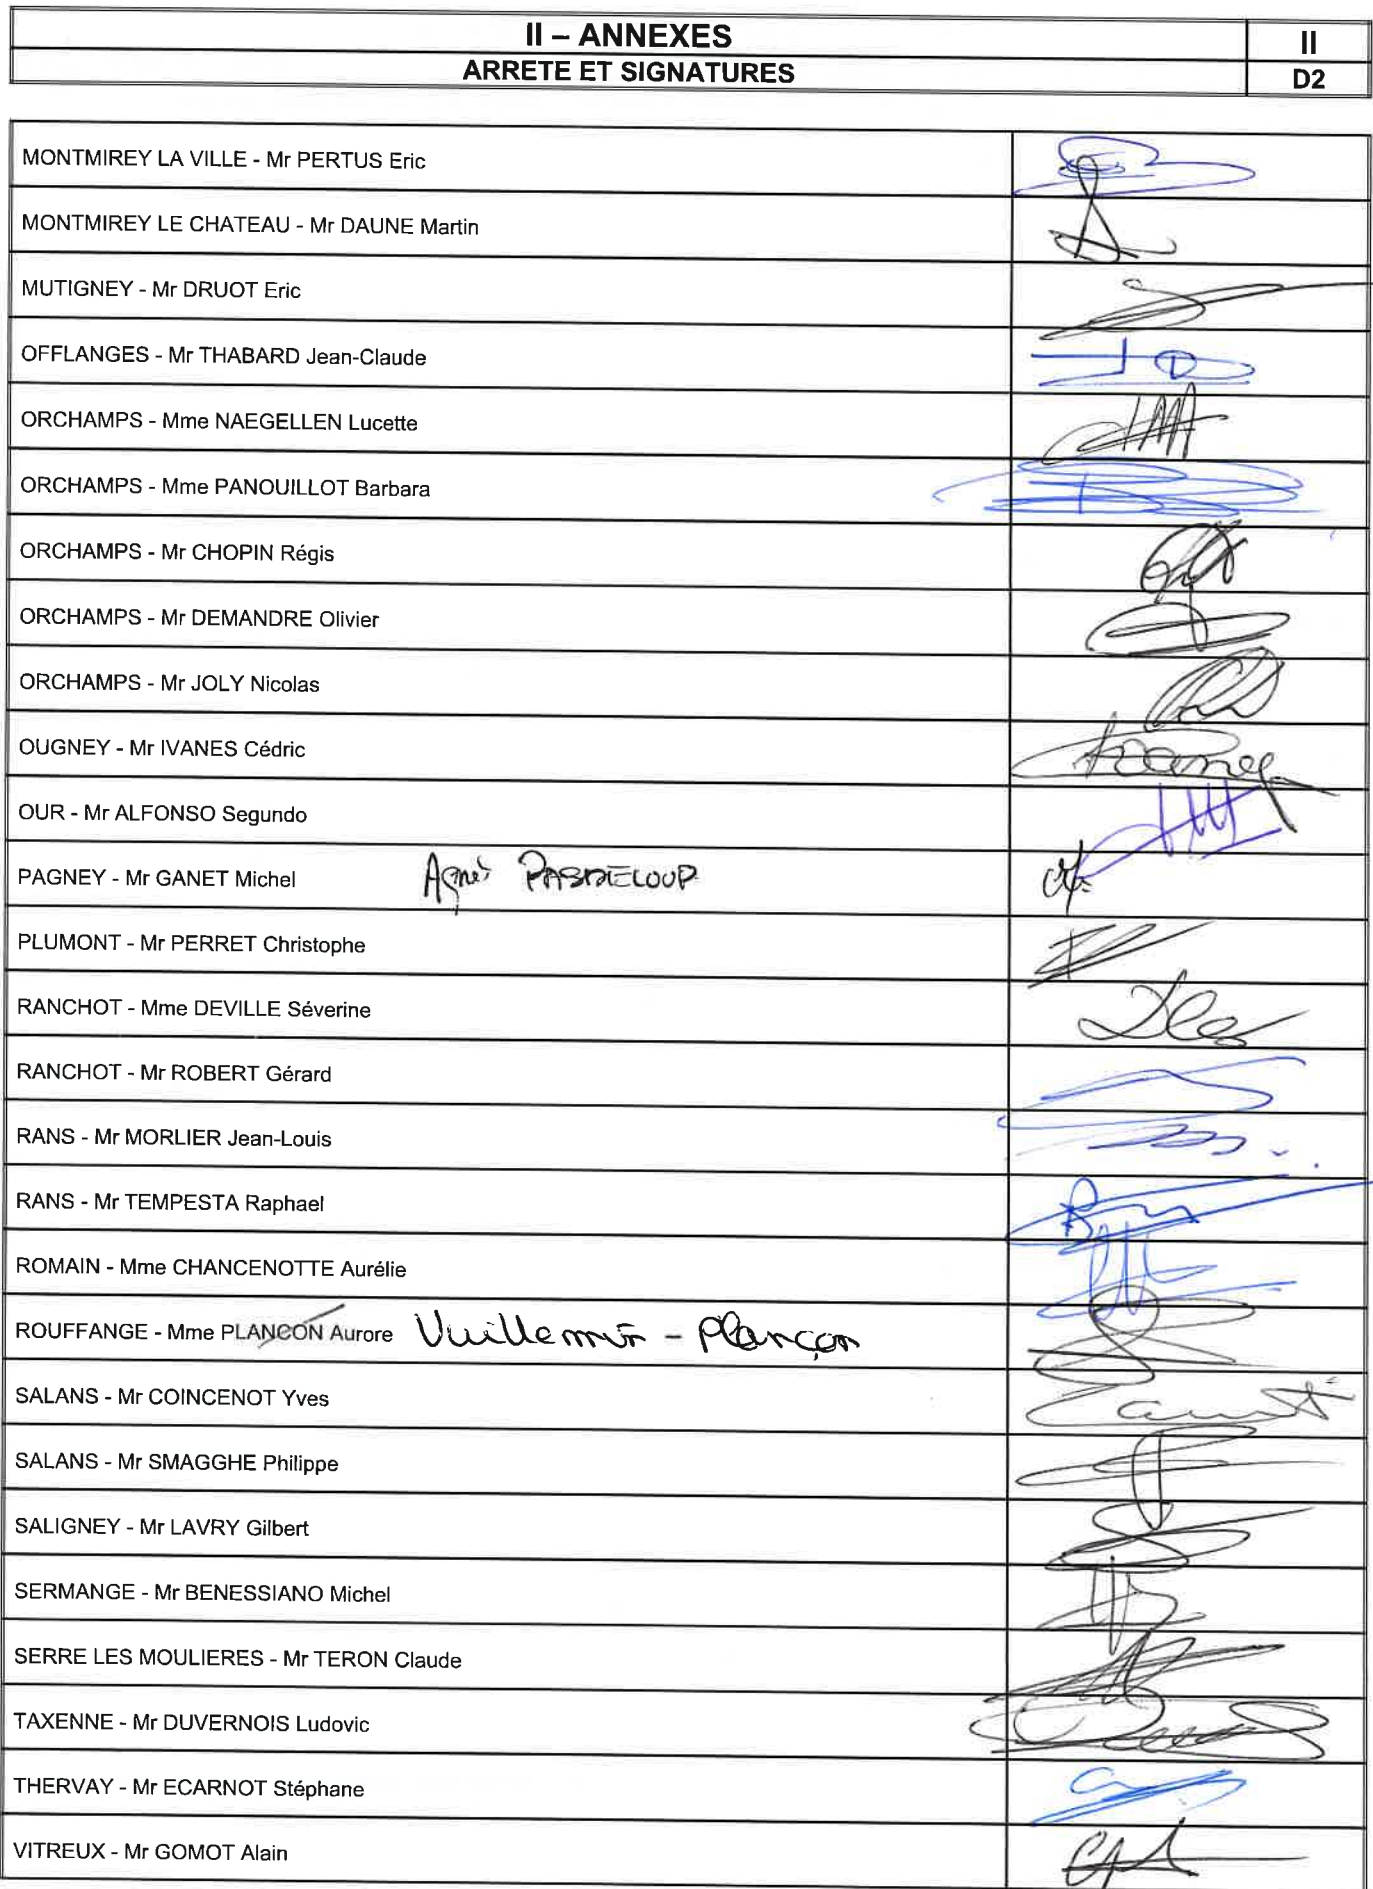 II – ANNEXES
II
ARRETE ET SIGNATURES
D2
MONTMIREY LA VILLE - Mr PERTUS Eric
MONTMIREY LE CHATEAU - Mr DAUNE Martin
MUTIGNEY - Mr DRUOT Eric
OFFLANGES - Mr THABARD Jean-Claude
ORCHAMPS - Mme NAEGELLEN Lucette
ORCHAMPS - Mme PANOUILLOT Barbara
ORCHAMPS - Mr CHOPIN Régis
ORCHAMPS - Mr DEMANDRE Olivier
ORCHAMPS - Mr JOLY Nicolas
OUGNEY - Mr IVANES Cédric
OUR - Mr ALFONSO Segundo
PAGNEY - Mr GANET Michel Agnès PASDELOUP
PLUMONT - Mr PERRET Christophe
RANCHOT - Mme DEVILLE Séverine
RANCHOT - Mr ROBERT Gérard
RANS - Mr MORLIER Jean-Louis
RANS - Mr TEMPESTA Raphael
ROMAIN - Mme CHANCENOTTE Aurélie
ROUFFANGE - Mme PLANCON Aurore Vuillemin - Plançon
SALANS - Mr COINCENOT Yves
SALANS - Mr SMAGGHE Philippe
SALIGNEY - Mr LAVRY Gilbert
SERMANGE - Mr BENESSIANO Michel
SERRE LES MOULIERES - Mr TERON Claude
TAXENNE - Mr DUVERNOIS Ludovic
THERVAY - Mr ECARNOT Stéphane
VITREUX - Mr GOMOT Alain